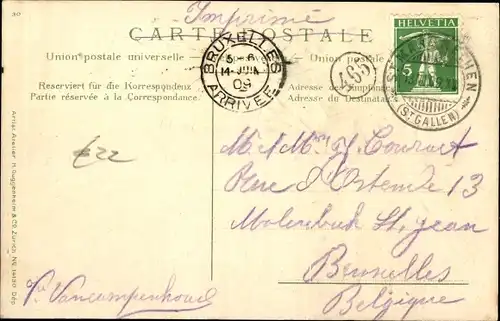 30
Imprimé
CARTE POSTALE
Union postale universelle
Union postale
Reserviert für die Korrespondenz
Partie réservée à la Correspondance.
Adresse des
Adresse du Destinataire
BRUXELLES
14 JUIN
09
ARRIVEE
465
HELVETIA
5
(ST GALLEN)
€22
M. et Mme J. Couvart
Rue d'Ostende 13
Molenbeek St. Jean
Bruxelles
Belgique
Vancampenhoud
Artist. Atelier H. Guggenheim & Co., Zürich.
Dép.